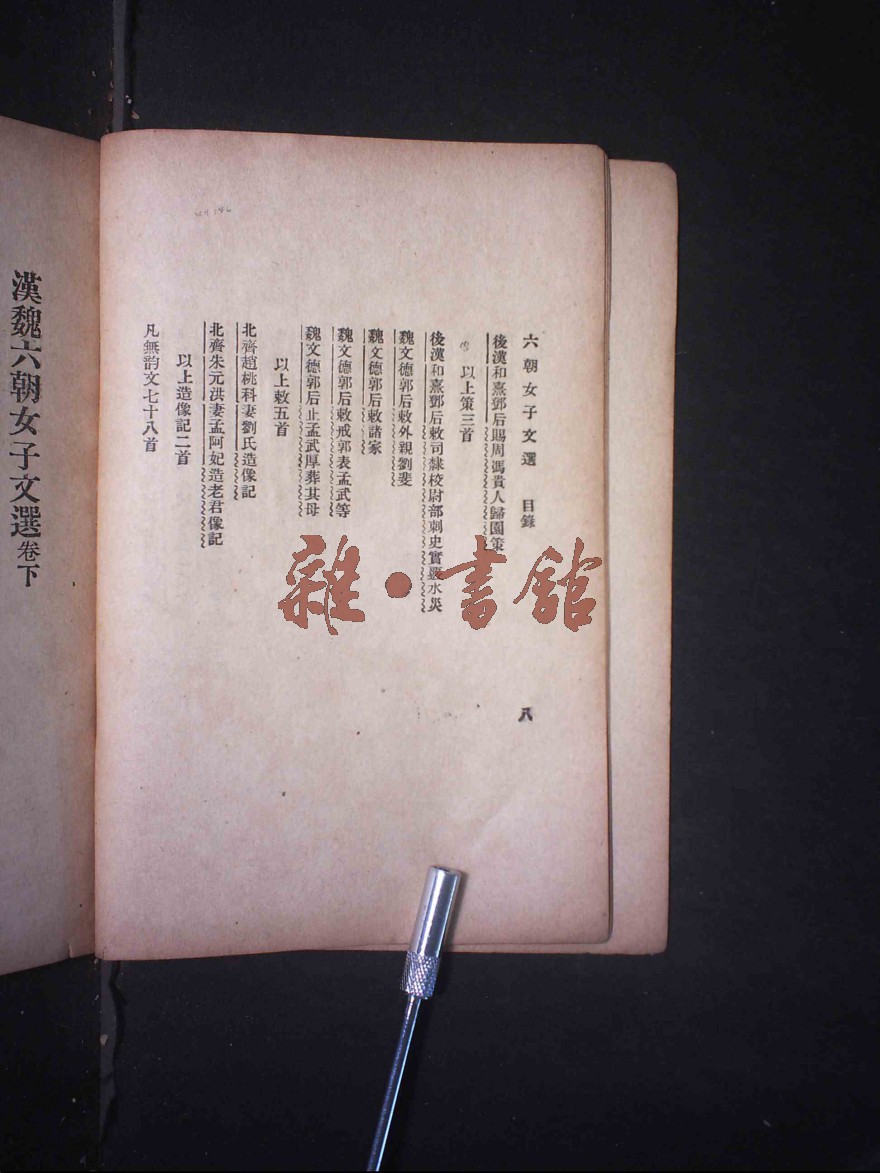 六朝女子文選　目錄
八
後漢和熹鄧后賜周馮貴人歸園策
以上策三首
後漢和熹鄧后敕司隸校尉部刺史實覈水災
魏文德郭后敕外親劉斐
魏文德郭后敕諸家
魏文德郭后敕戒郭表孟武等
魏文德郭后止孟武厚葬其母
以上敕五首
北齊趙桃科妻劉氏造像記
北齊朱元洪妻孟阿妃造老君像記
以上造像記二首
凡無韵文七十八首
漢魏六朝女子文選卷下
雜·書館